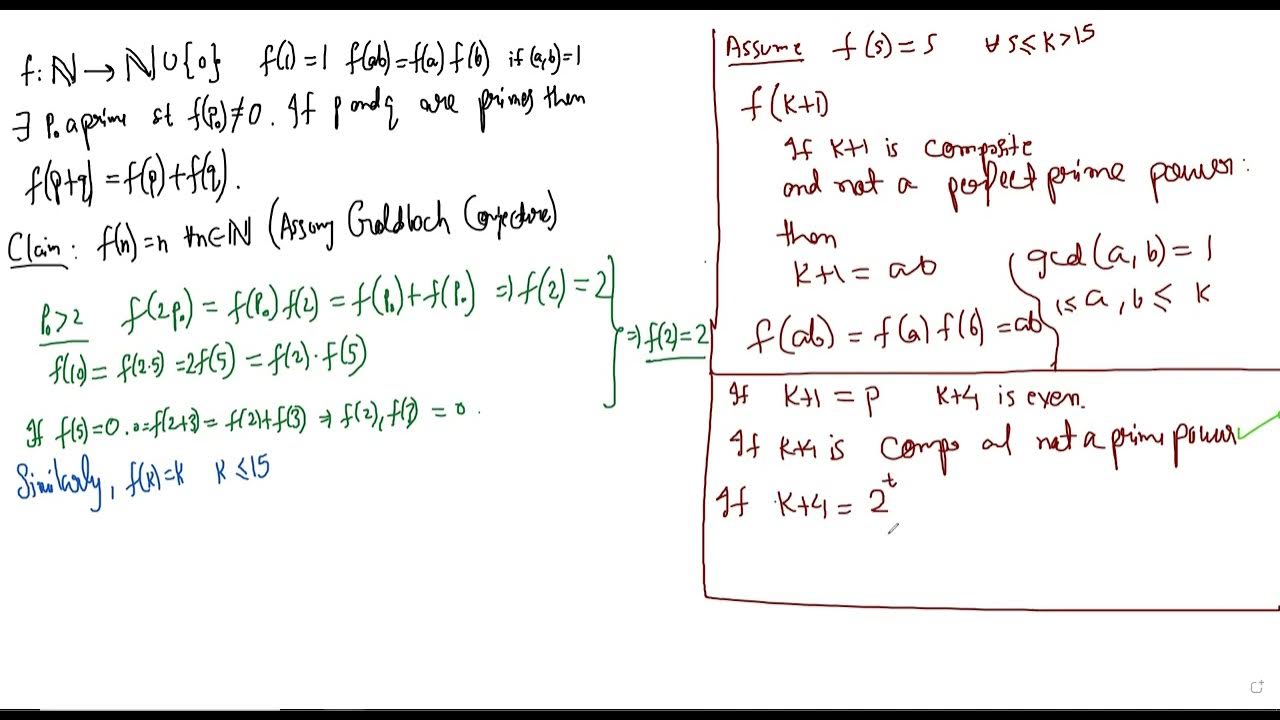 f: ℕ → ℕ ∪ {0} f(1) = 1 f(ab) = f(a) f(b) if (a,b)=1
∃ p₀ a prime st f(p₀) ≠ 0. If p and q are primes then
f(p+q) = f(p) + f(q).
Claim: f(n) = n ∀n∈ℕ (Assuming Goldbach Conjecture)
p₀ > 2 f(2p₀) = f(p₀) f(2) = f(p₀) + f(p₀) ⇒ f(2) = 2
f(10) = f(2·5) = 2f(5) = f(2)·f(5)
⇒ f(2) = 2
If f(5) = 0. 0 = f(2+3) = f(2) + f(3) ⇒ f(2), f(3) = 0.
Similarly, f(k) = k k ≤ 15
Assume f(s) = s ∀ s ≤ k > 15
f(k+1)
If k+1 is composite
and not a perfect prime power:
then
k+1 = ab
gcd(a, b) = 1
1 ≤ a, b ≤ k
f(ab) = f(a) f(b) = ab
If k+1 = p k+4 is even.
If k+4 is comps and not a prime power ✓
If k+4 = 2^t